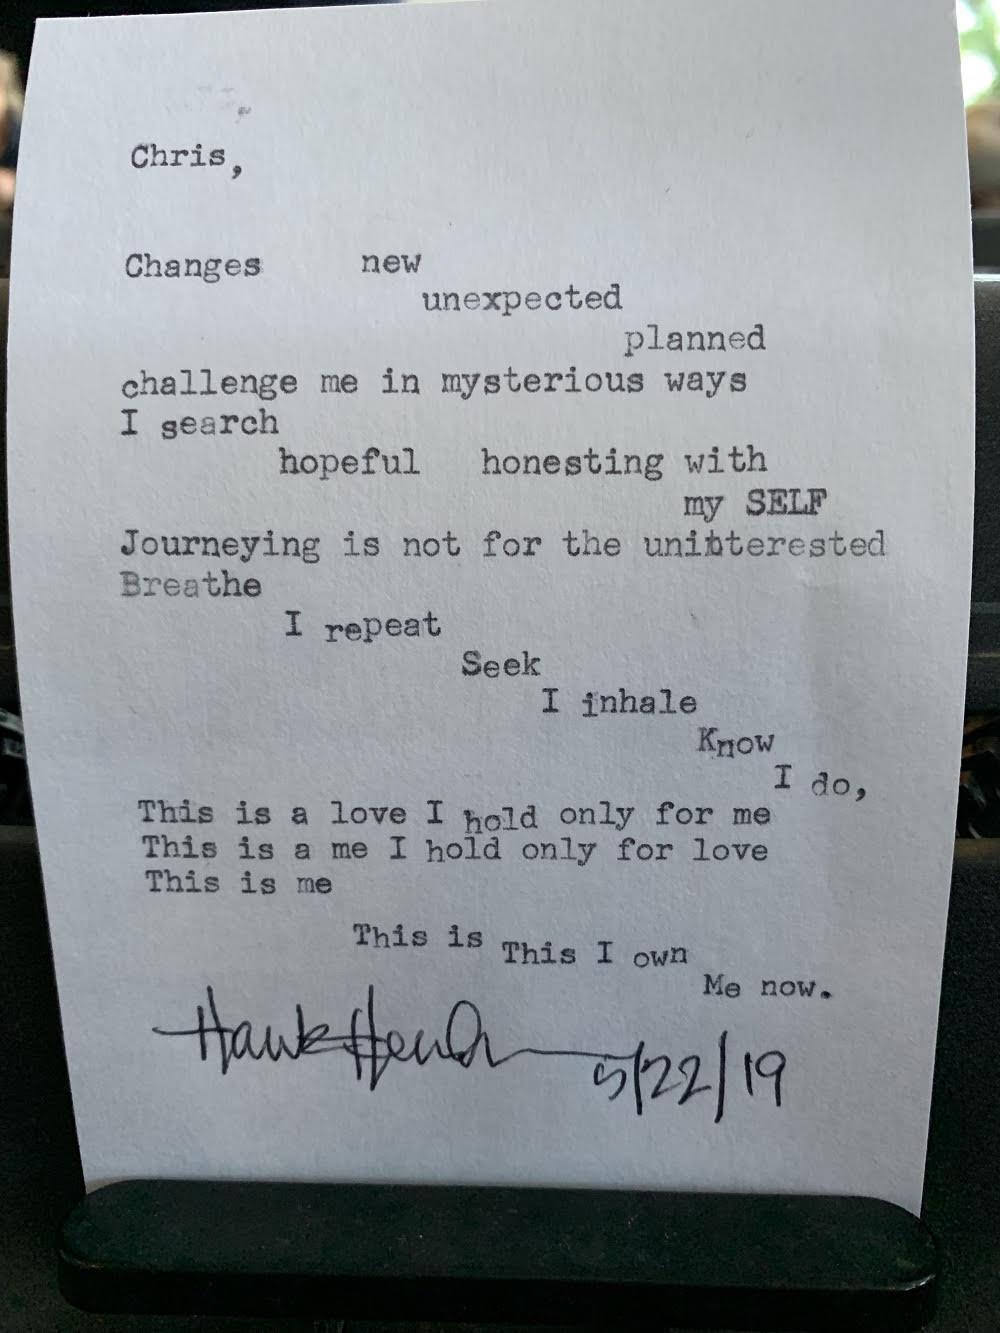 Chris,
Changes new
unexpected
planned
challenge me in mysterious ways
I search
hopeful honesting with
my SELF
Journeying is not for the uninterested
Breathe
I repeat
Seek
I inhale
Know
I do,
This is a love I hold only for me
This is a me I hold only for love
This is me
This is This I own
Me now.
5/22/19